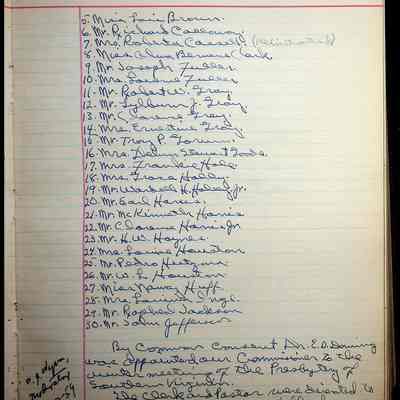 5. Miss Lois Brown
6. Mr. Richard Callaway
7. Mrs. Roberta Cassell
8. Miss Alma Bernice Clark
9. Mr. Joseph Fuller
10. Mrs. Fuller
11. Mr. Robert W. Gray
12. Mr. Sylburn J. Gray
13. Mr. Clarence Gray
14. Mrs. Ernestine Gray
15. Mr. Troy P. Gorum
16. Mrs. Stewart
17. Mrs. Frankie Hale
18. Mrs. Grace Halley
19. Mr. H. Jr.
20. Mr. Earl Harris
21. Mr. McKinneth Harris
22. Mr. Clarence Harris Jr.
23. Mr. H. W. Haynes
24. Mrs. Louise Houston
25. Mr. Pedro
26. Mr. W. L. Houston
27. Miss Nancy Huff
28. Mrs. Lavinia
29. Mr. Raphael Jackson
30. Mr. John Jefferson
By Common Consent Dr. E. D.
was appointed our Commissioner to the
winter meeting of the Presbytery of
Southern Virginia.
The Clerk and Pastor were directed to